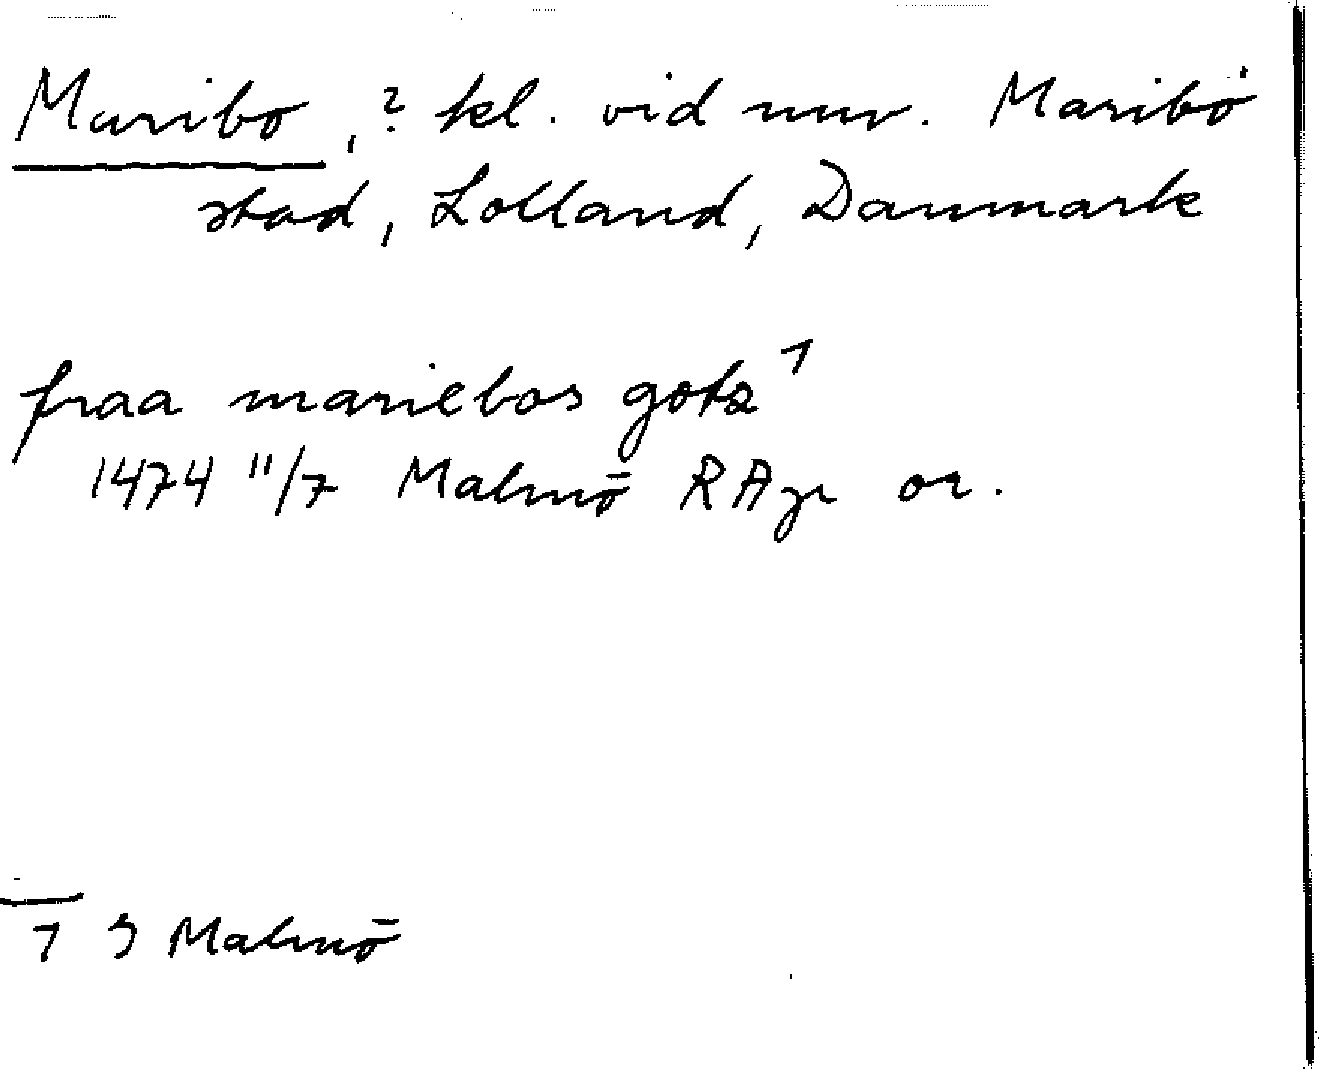 Maribo, ? kl. vid nuv. Maribo
stad, Lolland, Danmark
fraa mariebos gotz ¹
1474 11/7 Malmö RAp or.
1 I Malmö